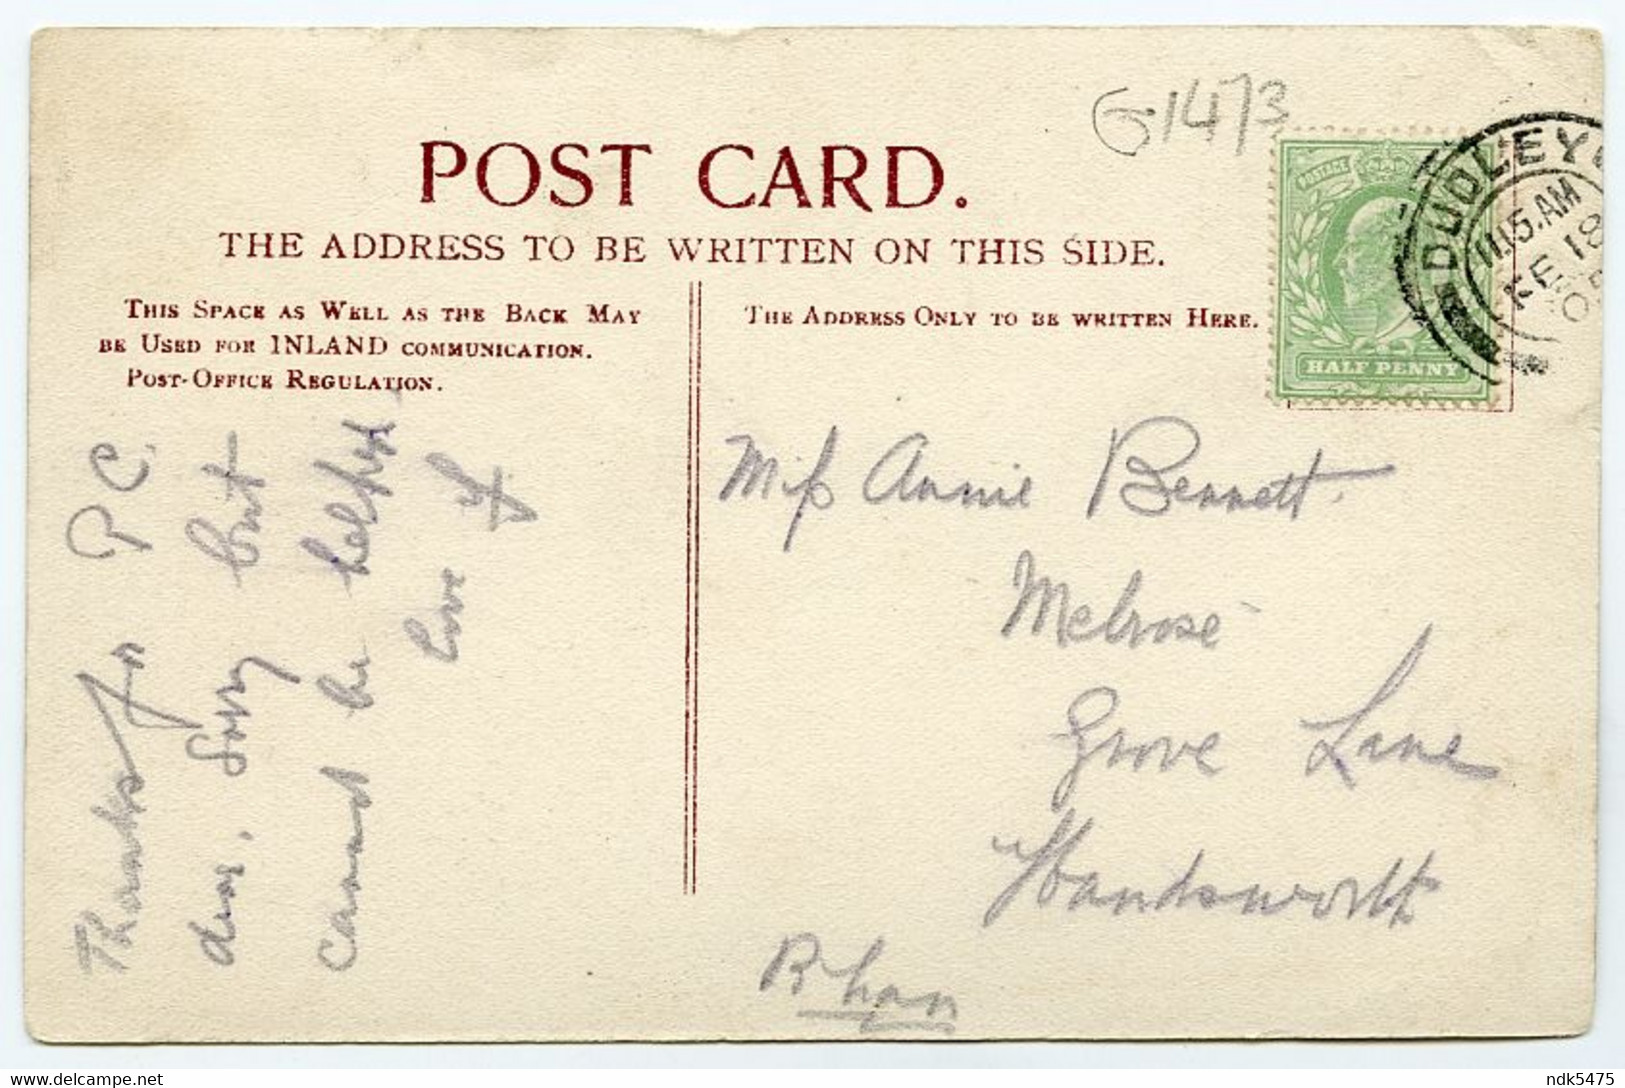 G1473
POST CARD.
THE ADDRESS TO BE WRITTEN ON THIS SIDE.
THIS SPACE AS WELL AS THE BACK MAY
BE USED FOR INLAND COMMUNICATION.
POST-OFFICE REGULATION.
THE ADDRESS ONLY TO BE WRITTEN HERE.
POSTAGE
HALF PENNY
DUDLEY
11.15 AM
FE 18
05
Thanks for P.C.
dear, Sorry but
cannot be helped.
love
Miss Annie Bennett.
Melrose
Grove Lane
Handsworth
B'ham
ndk5475